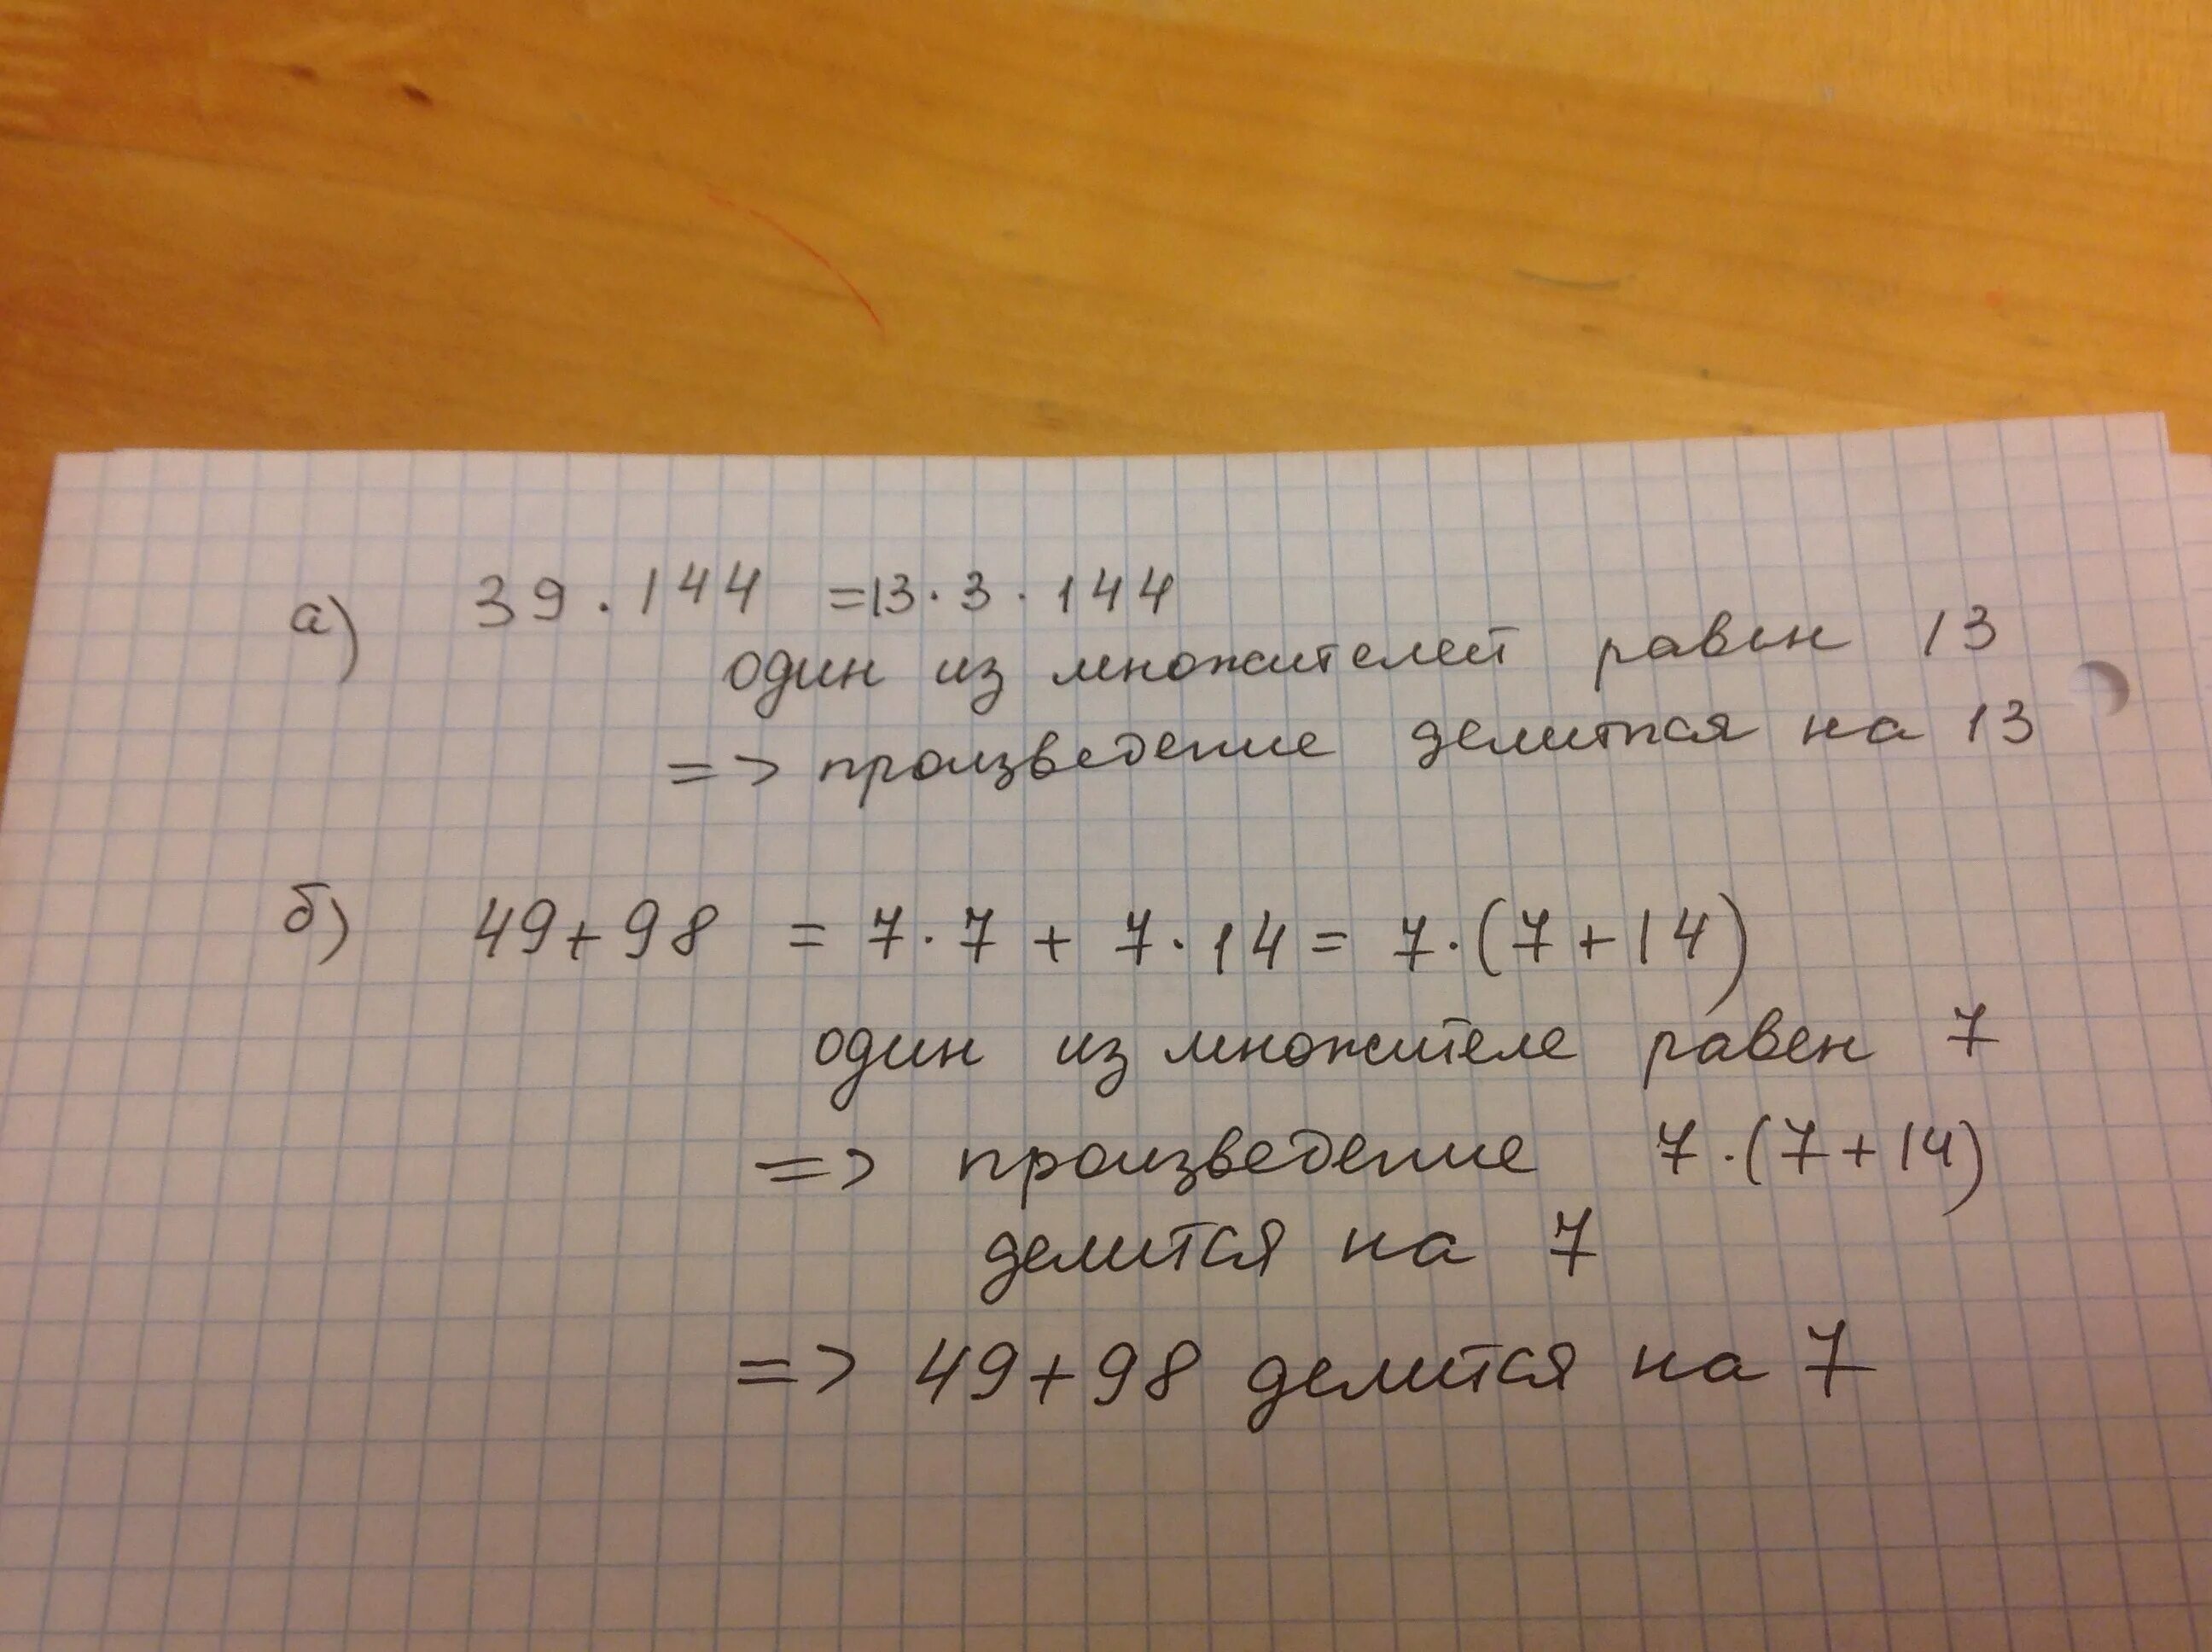 а) 39 · 144 = 13 · 3 · 144
один из множителей равен 13
=> произведение делится на 13
б) 49 + 98 = 7 · 7 + 7 · 14 = 7 · (7 + 14)
один из множителе равен 7
=> произведение 7 · (7 + 14)
делится на 7
=> 49 + 98 делится на 7